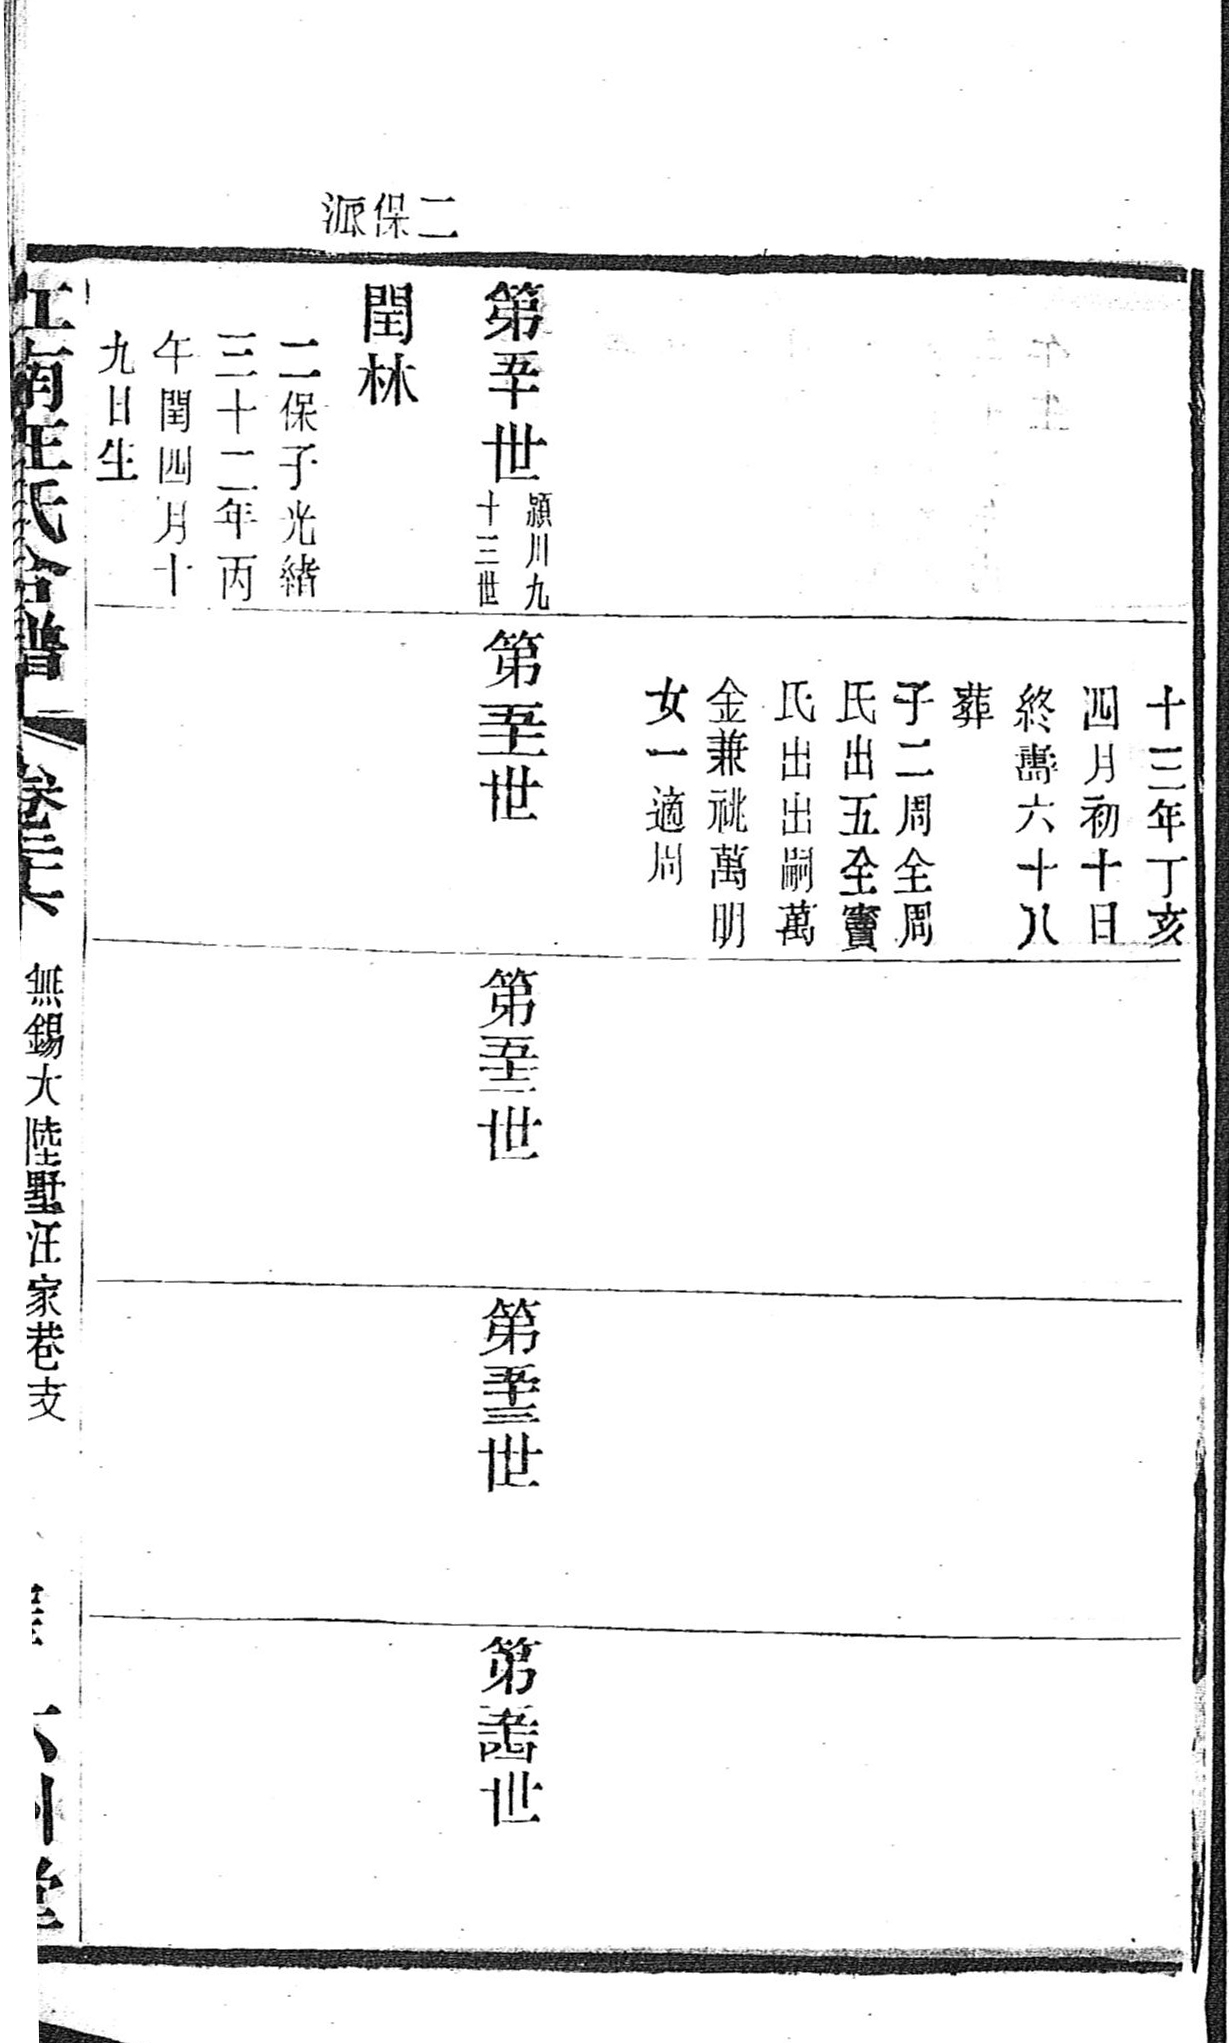 二保派
十三年丁亥
四月初十日
終壽六十八
葬
子二周全周
氏出五全竇
氏出出嗣萬
金兼祧萬明
女一適周
第五十世
潁川九
十三世
第五十一世
第五十二世
第五十三世
第五十四世
閏林
二保子光緒
三十二年丙
午閏四月十
九日生
江南汪氏合譜
卷三十六
無錫大陸墅汪家巷支
六州堂